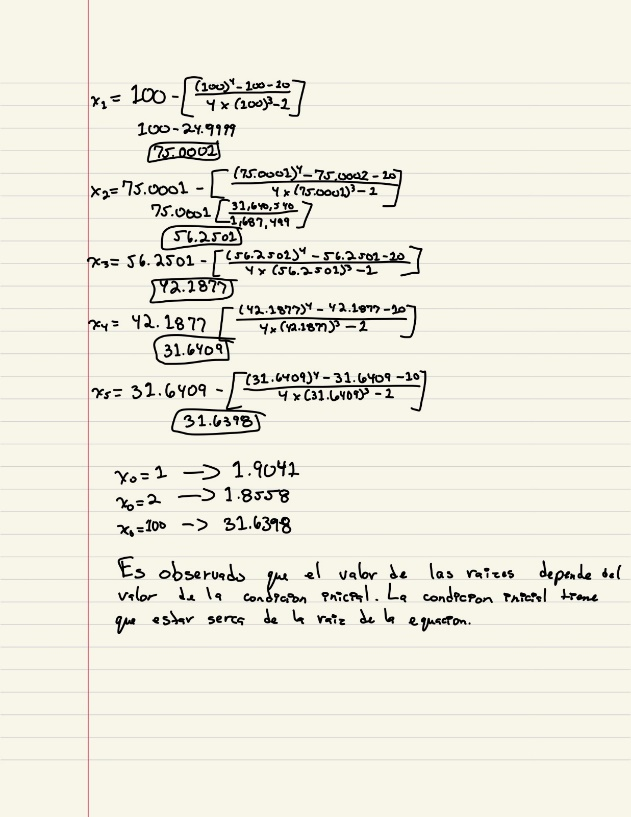 x₁ = 100 - [((100)⁴ - 100 - 10) / (4 × (100)³ - 1)]
100 - 24.9999
75.0001
x₂ = 75.0001 - [((75.0001)⁴ - 75.0001 - 10) / (4 × (75.0001)³ - 1)]
75.0001 [31,640,540 / 1,687,499]
56.2501
x₃ = 56.2501 - [((56.2501)⁴ - 56.2501 - 10) / (4 × (56.2501)³ - 1)]
42.1877
x₄ = 42.1877 [((42.1877)⁴ - 42.1877 - 10) / (4 × (42.1877)³ - 1)]
31.6409
x₅ = 31.6409 - [((31.6409)⁴ - 31.6409 - 10) / (4 × (31.6409)³ - 1)]
31.6398
x₀ = 1 -> 1.9041
x₀ = 2 -> 1.8558
x₀ = 100 -> 31.6398
Es observado que el valor de las raizes depende del
valor de la condicion inicial. La condicion inicial tiene
que estar serca de la raiz de la equacion.